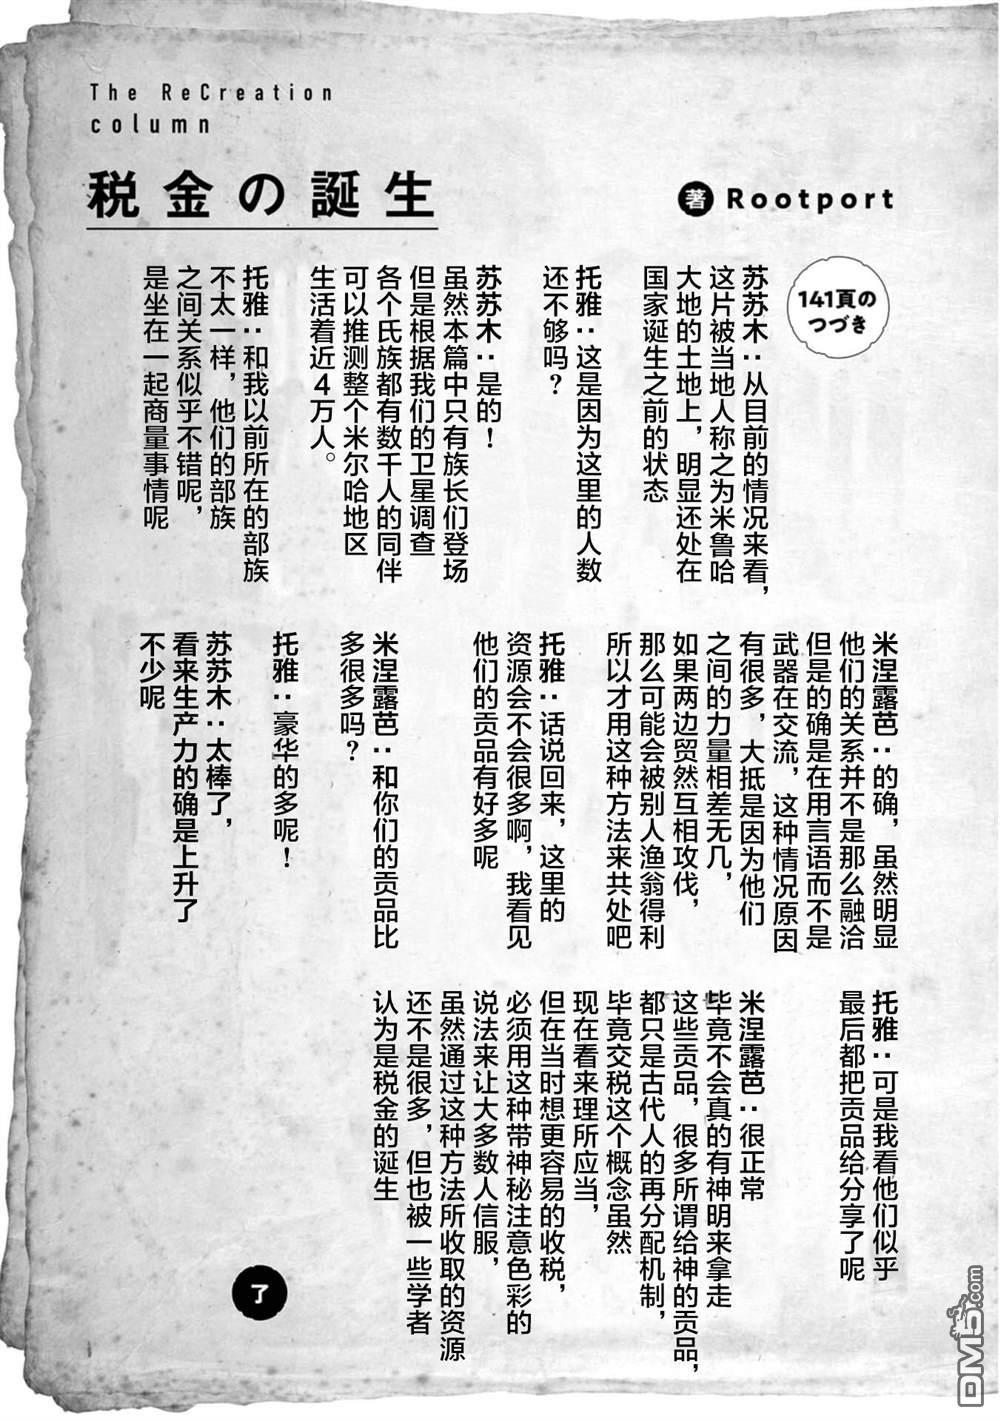 The ReCreation
column
税金の誕生
著 Rootport
141頁の
つづき
苏苏木：从目前的情况来看，
这片被当地人称之为米鲁哈
大地的土地上，明显还处在
国家诞生之前的状态
托雅：这是因为这里的人数
还不够吗？
苏苏木：是的！
虽然本篇中只有族长们登场
但是根据我们的卫星调查
各个氏族都有数千人的同伴
可以推测整个米尔哈地区
生活着近4万人。
托雅：和我以前所在的部族
不太一样，他们的部族
之间关系似乎不错呢，
是坐在一起商量事情呢
米涅露芭：的确，虽然明显
他们的关系并不是那么融洽
但是的确是在用言语而不是
武器在交流，这种情况原因
有很多，大抵是因为他们
之间的力量相差无几，
如果两边贸然互相攻伐，
那么可能会被别人渔翁得利
所以才用这种方法来共处吧
托雅：话说回来，这里的
资源会不会很多啊，我看见
他们的贡品有好多呢
米涅露芭：和你们的贡品比
多很多吗？
托雅：豪华的多呢！
苏苏木：太棒了，
看来生产力的确是上升了
不少呢
托雅：可是我看他们似乎
最后都把贡品给分享了呢
米涅露芭：很正常
毕竟不会真的有神明来拿走
这些贡品，很多所谓给神的贡品，
都只是古代人的再分配机制，
毕竟交税这个概念虽然
现在看来理所应当，
但在当时想更容易的收税，
必须用这种带神秘注意色彩的
说法来让大多数人信服，
虽然通过这种方法所收取的资源
还不是很多，但也被一些学者
认为是税金的诞生
了
DM5.com